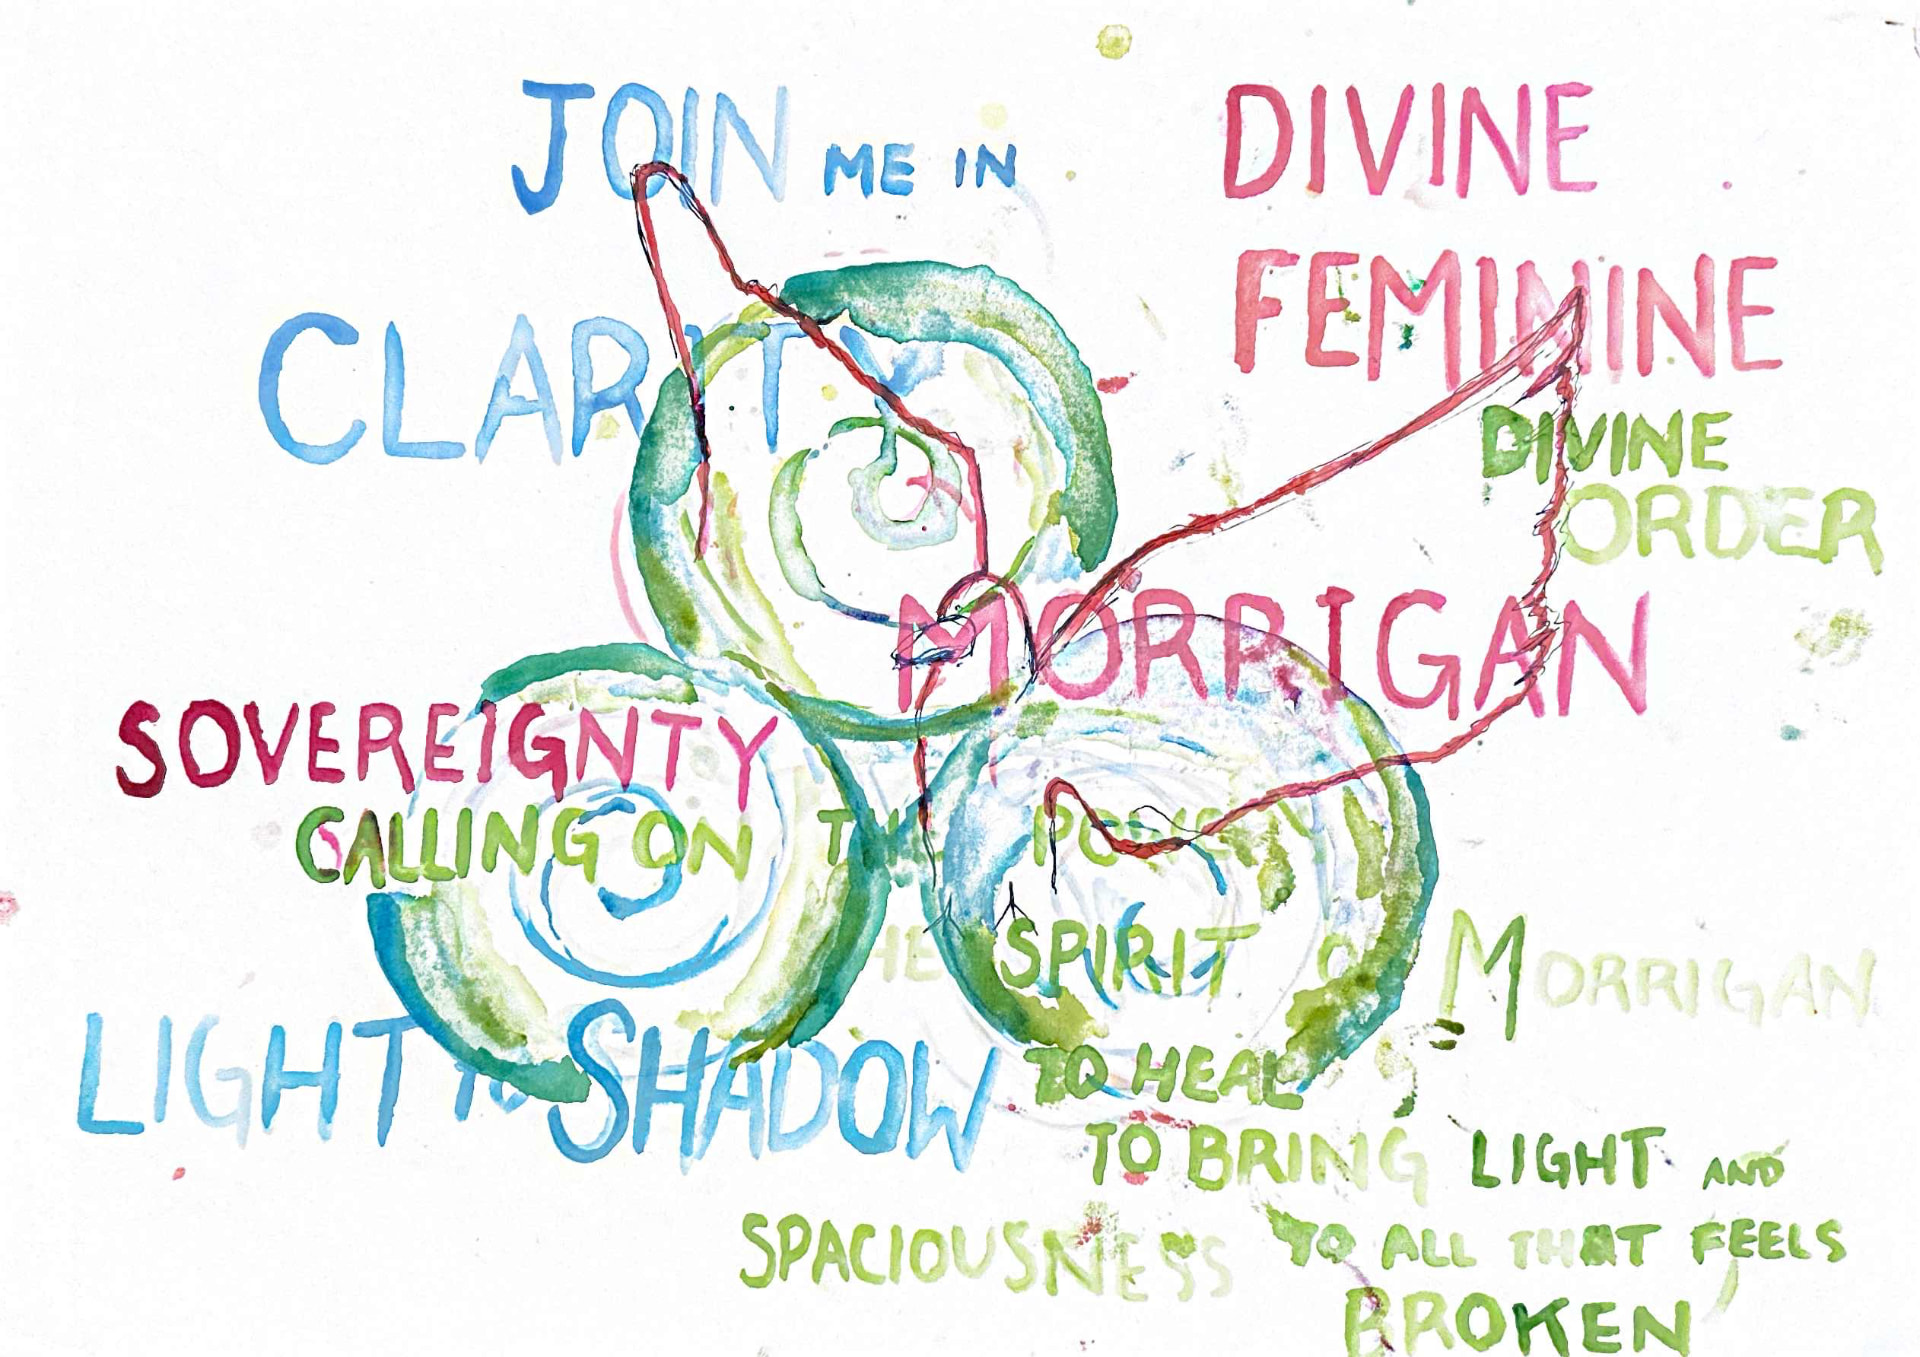 JOIN ME IN
CLARITY
DIVINE
FEMININE
DIVINE
ORDER
MORRIGAN
SOVEREIGNTY
CALLING ON THE POWER
THE SPIRIT OF MORRIGAN
LIGHT TO SHADOW
TO HEAL
TO BRING LIGHT AND
SPACIOUSNESS TO ALL THAT FEELS
BROKEN